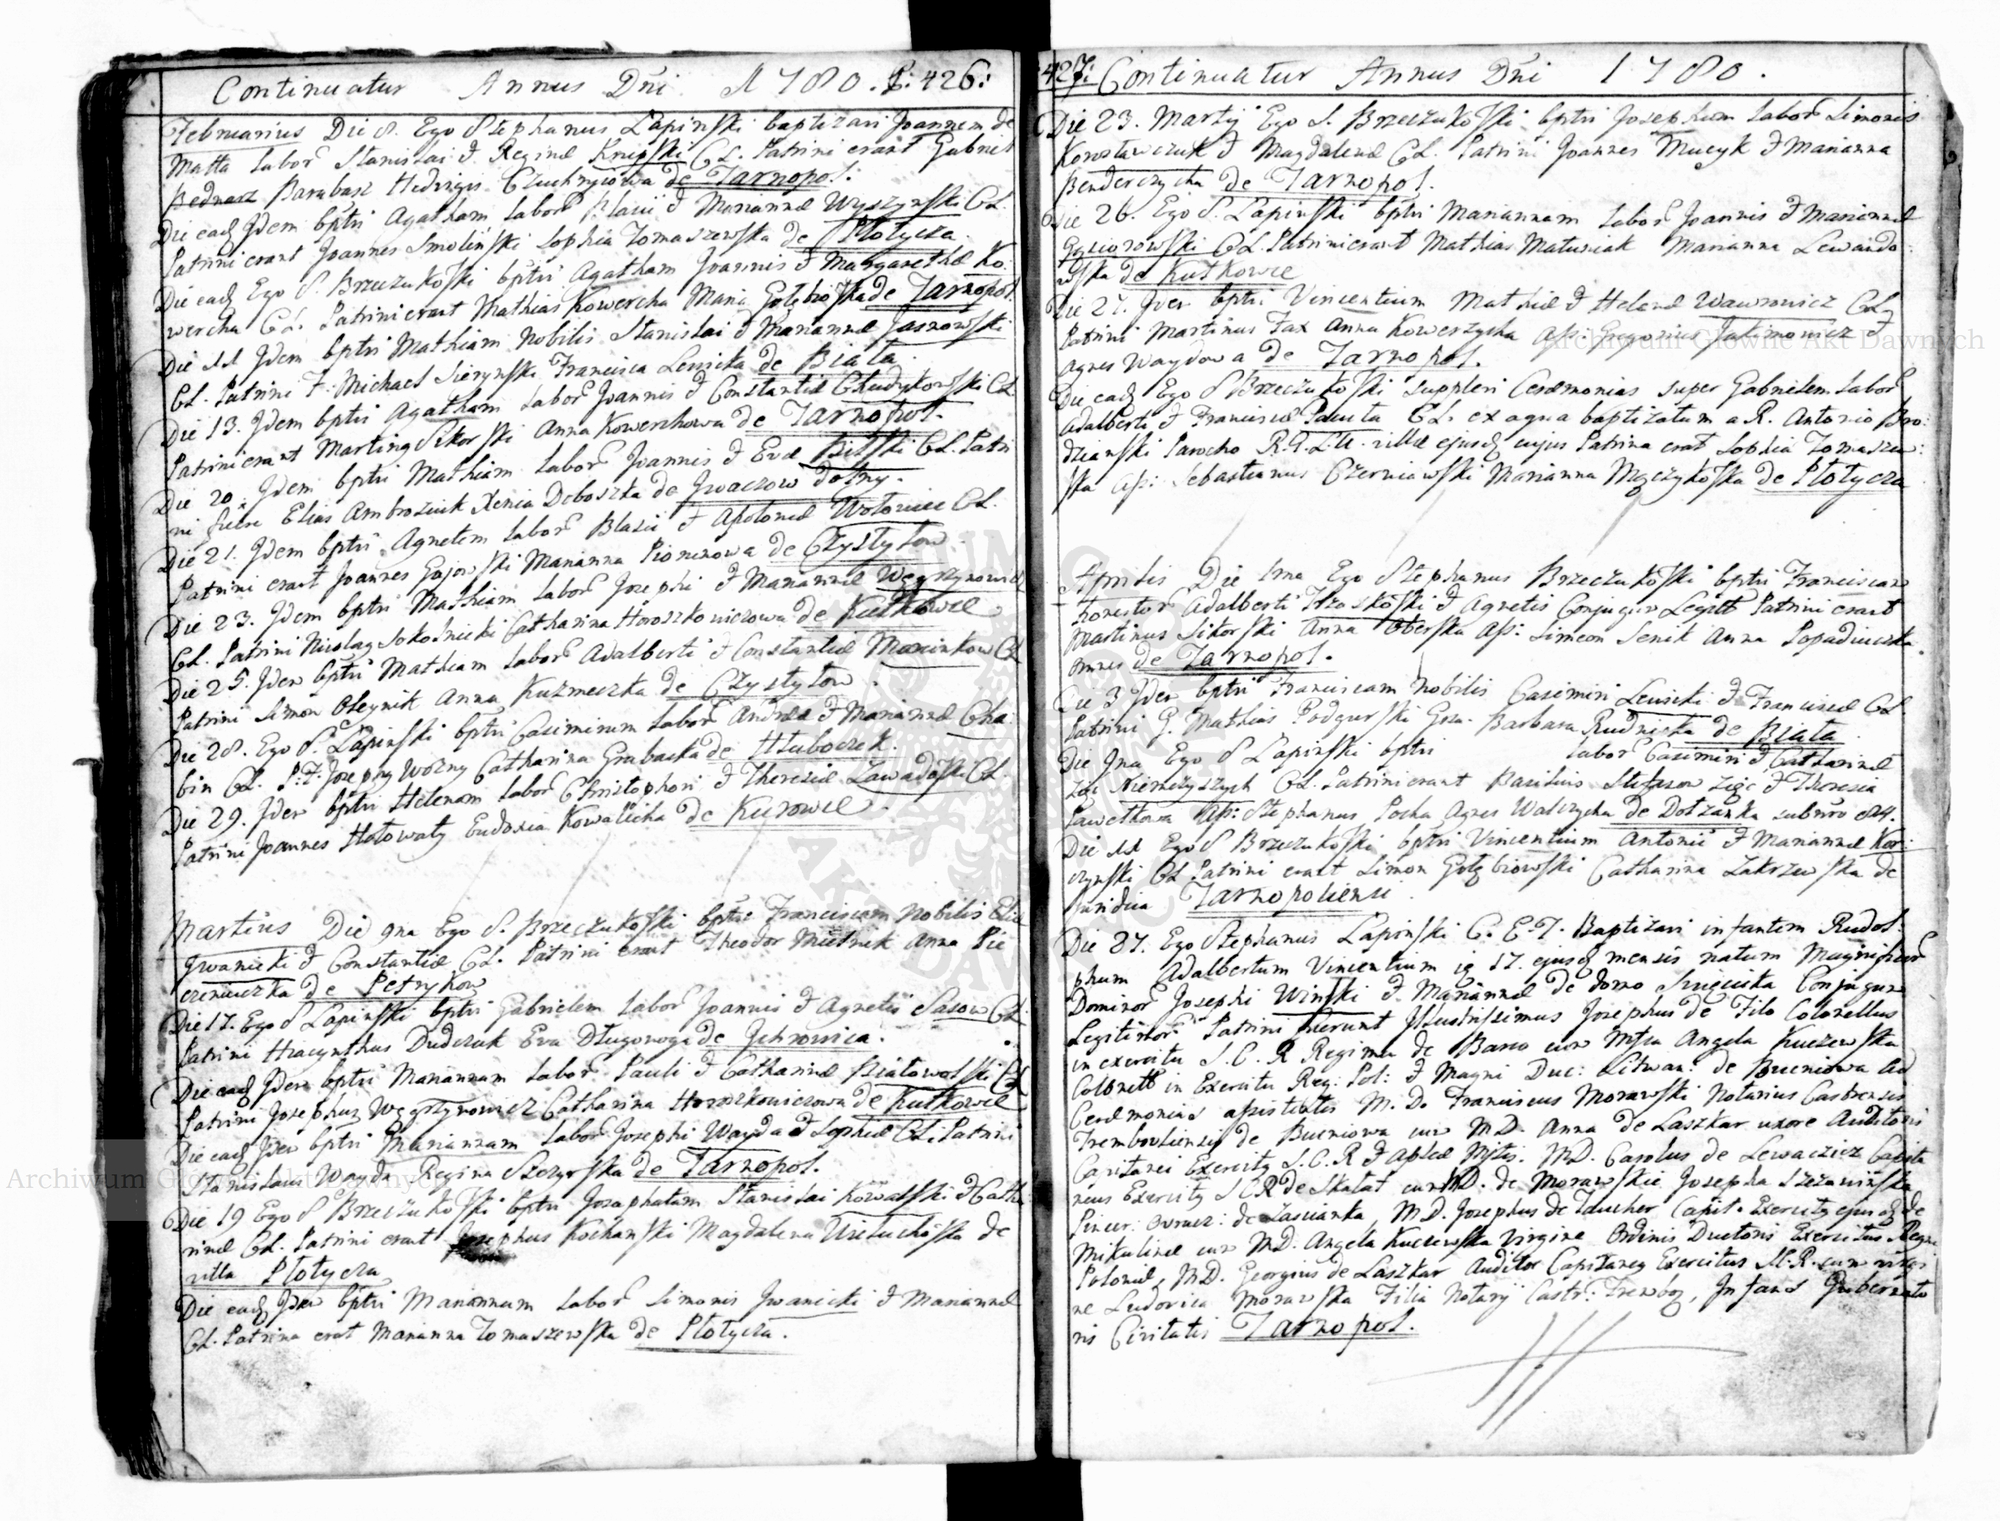 Continuatur Annus Dni 1780. P: 426:
Februarius Die 8. Ego Stephanus Łapinski baptizavi Joannem de
Matta labor Stanislai & Reginæ Knipski CL. Patrini erant Gabriel
Bednarz Barabasz Hedvigis Czuchryiowa de Tarnopol.
Die eadq Idem bptvi Agatham labor Blasii & Mariannæ Wyszynski CL.
Patrini erant Joannes Smolinski Sophia Tomaszewska de Płotycza.
Die eadq Ego S. Brzeczukoski bptvi Agatham Joannis & Margarethæ Ko:
wercha CL. Patrini erant Mathias Kowercha Maria Gołębioska de Tarnopol.
Die 11 Idem bptvi Mathiam Nobilis Stanislai & Mariannæ Jasnowski
CL. Patrini F: Michael Sierynski Francisca Lewicka de Biała.
Die 13. Idem bptvi Agatham labor Joannis & Constantiæ Chudykowski CL
Patrini erant Martinq Sikorski Anna Kowerchowa de Tarnopol.
Die 20. Idem bptvi Mathiam labor Joannis & Evæ Bilski CL. Patri
ni fuere Elias Ambroziuk Xenia Doboszka de Iwaczow dolny.
Die 21. Idem bptvi Agnetem labor Blasii & Apoloniæ Wołowiec CL.
Patrini erant Joannes Gajowski Marianna Pionczowa de Czystyłow.
Die 23. Idem bptvi Mathiam labor Josephi & Mariannæ Węgrzynowicz
CL. Patrini Nicolaq Sokolnicki Catharina Horoszkowiczowa de Kutkowce
Die 25. Idem bptvi Mathiam labor Adalberti & Constantiæ Marinkow CL
Patrini Simon Oleynik Anna Kuzmeczka de Czystyłow.
Die 28. Ego S. Łapinski bptvi Casimirum labor Andreæ & Mariannæ Cha:
bin CL. P: F: Josephq Wozny Catharina Grabacka de Hłuboczek.
Die 29. Idem bptvi Helenam labor Christophori & Theresiæ Zawadoski CL.
Patrini Joannes Hołowaty Eudoxia Kowalicha de Kurowce.
Martius Die 9na Ego S. Brzeczukoski bptvi Franciscam Nobilis Eliæ
Iwanicki & Constantiæ CL. Patrini erant Theodor Mielnik Anna Pie
czeniuczka de Petrykow
Die 17. Ego S Łapinski bptvi Gabrielem labor Joannis & Agnetis Sasow CL.
Patrini Hiacynthus Dudczak Eva Długowoga de Ichrowica.
Die eadq Idem bptvi Mariannam labor Pauli & Catharinæ Białowolski CL
Patrini Josephus Węgrzynowicz Catharina Horoszkowiczowa de Kutkowce
Die eadq Idem bptvi Mariannam labor Josephi Wayda & Sophiæ CL: Patrini
Stanislaus Wayda Regina Skozyrska de Tarnopol.
Die 19 Ego S Brzeczukoski bptvi Josaphatam Stanislai Kowalski & Catha
rinæ CL. Patrini erant Josephus Kochanski Magdalena Wieluchoska de
villa Płotycza
Die eadq Idem bptvi Mariannam labor Simonis Iwanicki & Mariannæ
CL. Patrina erat Marianna Tomaszewska de Płotycza.
427: Continuatur Annus Dni 1780.
Die 23. Martij Ego S. Brzeczukoski bptvi Josephum labor Simonis
Konstawczuk & Magdalenæ CL. Patrini Joannes Mucyk & Marianna
Benderczycha de Tarnopol.
Die 26. Ego S. Łapinski bptvi Mariannam labor Joannis & Mariannæ
Gąsiorowski CL. Patrini erant Mathias Matusiak Marianna Lewando:
wska de Kutkowce
Die 27. Idem bptvi Vincentium Mathiæ & Helenæ Wawrowicz CL.
Patrini Martinus Fax Anna Kowerzycha Ass: Gregorius Jachimowicz &
Agnes Waydowa de Tarnopol.
Die eadq Ego S Brzeczukoski supplevi Cæremonias super Gabrielem labor
Adalberti & Franciscæ Paluta CL. ex aqua baptizatum a R. Antonio Bro:
dzianski Parocho R.G. villæ ejusdq cujus Patrina erat Sophia Tomaszew:
ska Ass: Sebastianus Czerniawski Marianna Męczykoska de Płotycza
Aprilis Die 1ma Ego Stephanus Brzeczukoski bptvi Franciscam
honestor Adalberti Trzaskoski & Agnetis Conjugum Legitt Patrini erant
Martinus Sikorski Anna Oberska Ass: Simeon Senik Anna Popadiuczka
omnes de Tarnopol.
Die 3 Idem bptvi Franciscam Nobilis Casimiri Lewicki & Franciscæ CL
Patrini G. Mathias Podgurski Gsa. Barbara Rudnicka de Biała.
Die Ima Ego S Łapinski bptvi labor Casimiri & Catharinæ
Niemetyszych CL. Patrini erant Basilius Stefanow & Theresia
Pawełkowa Ass: Stephanus Socha Agnes Walczycha de Dołżanka sub nro 84.
Die 11 Ego S Brzeczukoski bptvi Vincentium Antonii & Mariannæ Kor:
czynski CL Patrini erant Simon Gołębiowski Catharina Zakrzewska de
Juridica Tarnopoliensi
Die 27. Ego Stephanus Łapinski C.E.T. Baptizavi infantem Rudol:
phum Adalbertum Vincentium 17. ejusq mensis natum Magnificor
Dominor Josephi Winski & Mariannæ de domo Conjugum
Legitimor Patrini fuerunt Illustrissimus Josephus de Filo Colonellus
in exercitu S.C.R Regimen de Barco cum Mfca Angela Kuczewska
Colonell in Exercitu Reg: Pol: & Magni Duc: Litwan: de Bucniowa ad
Ceremonias assistentes M.D. Franciscus Morawski Notarius Castrensis
Trembovliensis de Bucniowa cum M.D. Anna de Laszkar uxore Auditoris
Capitanei Exercitq S.C.R & Aplæ Mttis. M.D. Carolus de Lewaczicz Capita
neus Exercitq SCR de Skałat cum MD. de Morawskie Josepha
Pincer: Owruc: de Zascianka, M.D. Josephus de Taucher Capit. Exercitq ejusq de
Mikulince cum M.D. Angela Kuczewska Virgine Ordinis Ductoris Exercitus Regni
Poloniæ, M.D. Georgius de Laszkar Auditor Capitaneq Exercitus S.C.R. cum virgi
ne Ludovica Morawska Filia Notarij Castr: Trembo, Infans Gubernato
ris Civitatis Tarnopol.
Archiwum Główne Akt Dawnych
Archiwum Główne Akt Dawnych